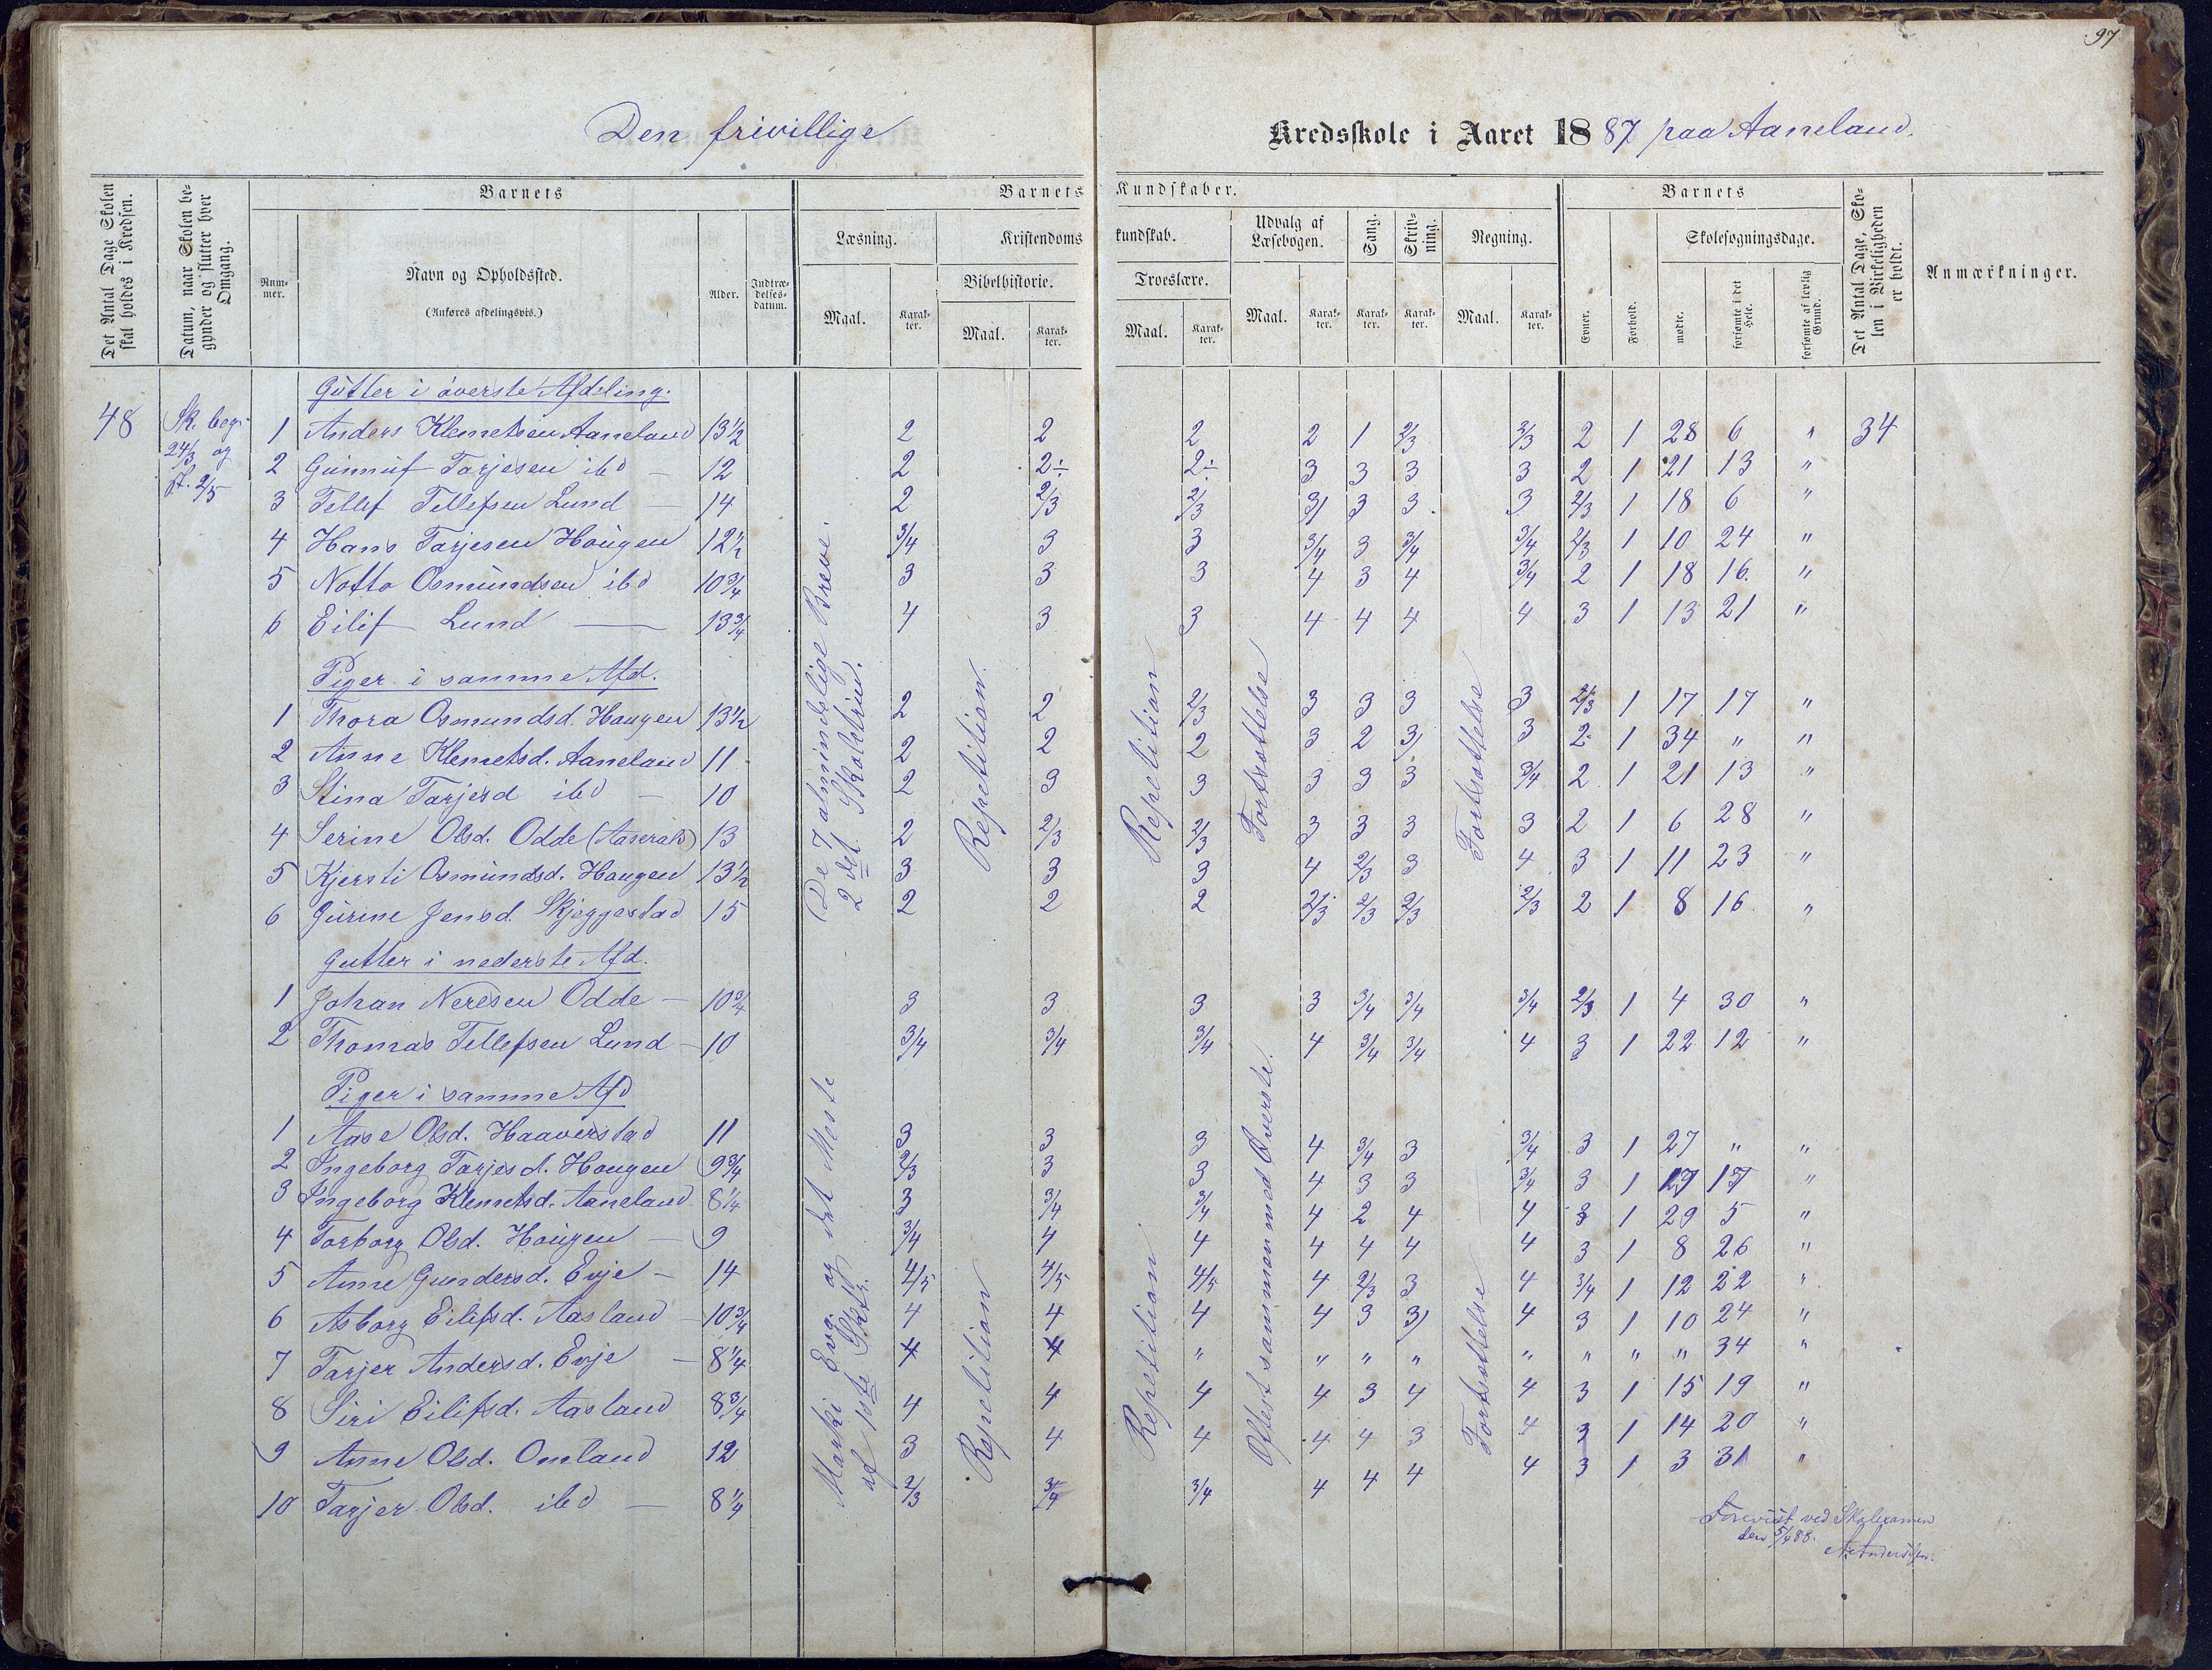 97
Den frivillige Kredsskole i Aaret 1887 paa Aaneland.
Det Antal Dage Skolen skal holdes i Kredsen.
Datum, naar Skolen begynder og slutter hver Omgang.
Barnets
Nummer.
Navn og Opholdssted.
(Anføres afdelingsvis.)
Alder.
Indtrædelsesdatum.
Barnets Kundskaber.
Læsning.
Maal.
Karakter.
Kristendomskundskab.
Bibelhistorie.
Maal.
Karakter.
Troeslære.
Maal.
Karakter.
Udvalg af Læsebogen.
Maal.
Karakter.
Sang.
Karakter.
Skrivning.
Karakter.
Regning.
Maal.
Karakter.
Barnets
Evner.
Forhold.
Skolesøgningsdage.
mødte.
forsømte i det Hele.
forsømte af lovlig Grund.
Det Antal Dage, Skolen i Virkeligheden er holdt.
Anmærkninger.
48
Sk. beg. 24/3 og sl. 2/5
Gutter i øverste Afdeling.
1 Anders Klemetsen Aaneland 13½ 2 2 2 2 1 2/3 2/3 2 1 28 6 " 34
2 Gunnuf Tarjesen ibd — 12 2 2÷ 2÷ 3 3 3 3 2 1 21 13 "
3 Tellef Tellefsen Lund — 14 2 2/3 2/3 3 3 3 3 2/3 1 18 6 "
4 Hans Tarjesen Hougen 12½ 3/4 3 3 3/4 3 3/4 3/4 2/3 1 10 24 "
5 Notto Osmundsen ibd 10¾ 3 3 3 4 3 4 3/4 2 1 18 16 "
6 Eilif Lund — 13¾ 4 3 3 4 4 4 4 3 1 13 21 "
Piger i samme Afd.
1 Thora Osmundsd. Haugen 13½ 2 2 2/3 3 3 3 3 2/3 1 17 17 "
2 Anne Klemetsd. Aaneland 11 2 2 2 3 2 3 3 2 1 34 " "
3 Stina Tarjesd ibd — 10 2 3 3 3 3 3 3/4 2 1 21 13 "
4 Serine Olsd. Odde (Aaseral) 13 2 2/3 2/3 3 3 3 3 2 1 6 28 "
5 Kjersti Osmundsd. Haugen 13½ 3 3 3 4 2/3 3 4 3 1 11 23 "
6 Gurine Jensd Skjeggestad 15 2 2 2 2/3 2/3 2/3 2/3 2 1 8 16 "
Gutter i nederste Afd.
1 Johan Neresen Odde — 10¾ 3 3 3 3 3/4 3/4 3/4 2/3 1 4 30 "
2 Thomas Tellefsen Lund — 10 3/4 3/4 3/4 4 3/4 3/4 4 3 1 22 12 "
Piger i samme Afd
1 Aase Olsd. Haaverstad 11 3 3 3 4 3/4 3 3/4 3 1 27 " "
2 Ingeborg Tarjesd. Hougen 9¾ 2/3 3 3 4 3 3 3/4 3 1 17 17 "
3 Ingeborg Klemetsd. Aaneland 8¼ 3 3/4 3/4 4 2 4 4 3 1 29 5 "
4 Torborg Olsd. Hougen — 9 3/4 4 4 4 4 4 4 3 1 8 26 "
5 Anne Gundersd. Evje — 14 4/5 4/5 4/5 4 2/3 3 4 3/4 1 12 22 "
6 Asborg Eilifsd. Aasland — 10¾ 4 4 4 4 3 3 4 3 1 10 24 "
7 Tarjer Andersd. Evje — 8¼ 4 4 " " " " " " " " 34 "
8 Siri Eilifsd. Aasland 8¾ 4 4 4 4 3 4 4 3 1 15 19 "
9 Anne Olsd. Omland 12 3 4 4 4 4 3 4 3 1 14 20 "
10 Tarjer Olsd. ibd — 8¼ 2/3 3/4 3/4 4 4 4 4 3 1 3 31 "
De 7 almindelige Breve.
2det Skoletrin.
Repetition.
Repetition
Fortsættelse
Fortsættelse
Marki Evg. og det Meste
af 1ste Sktr.
Repetition
Repetition.
Oftest sammen med Øverste.
Fortsættelse
Forevist ved Skolexamen
den 5/4 88.